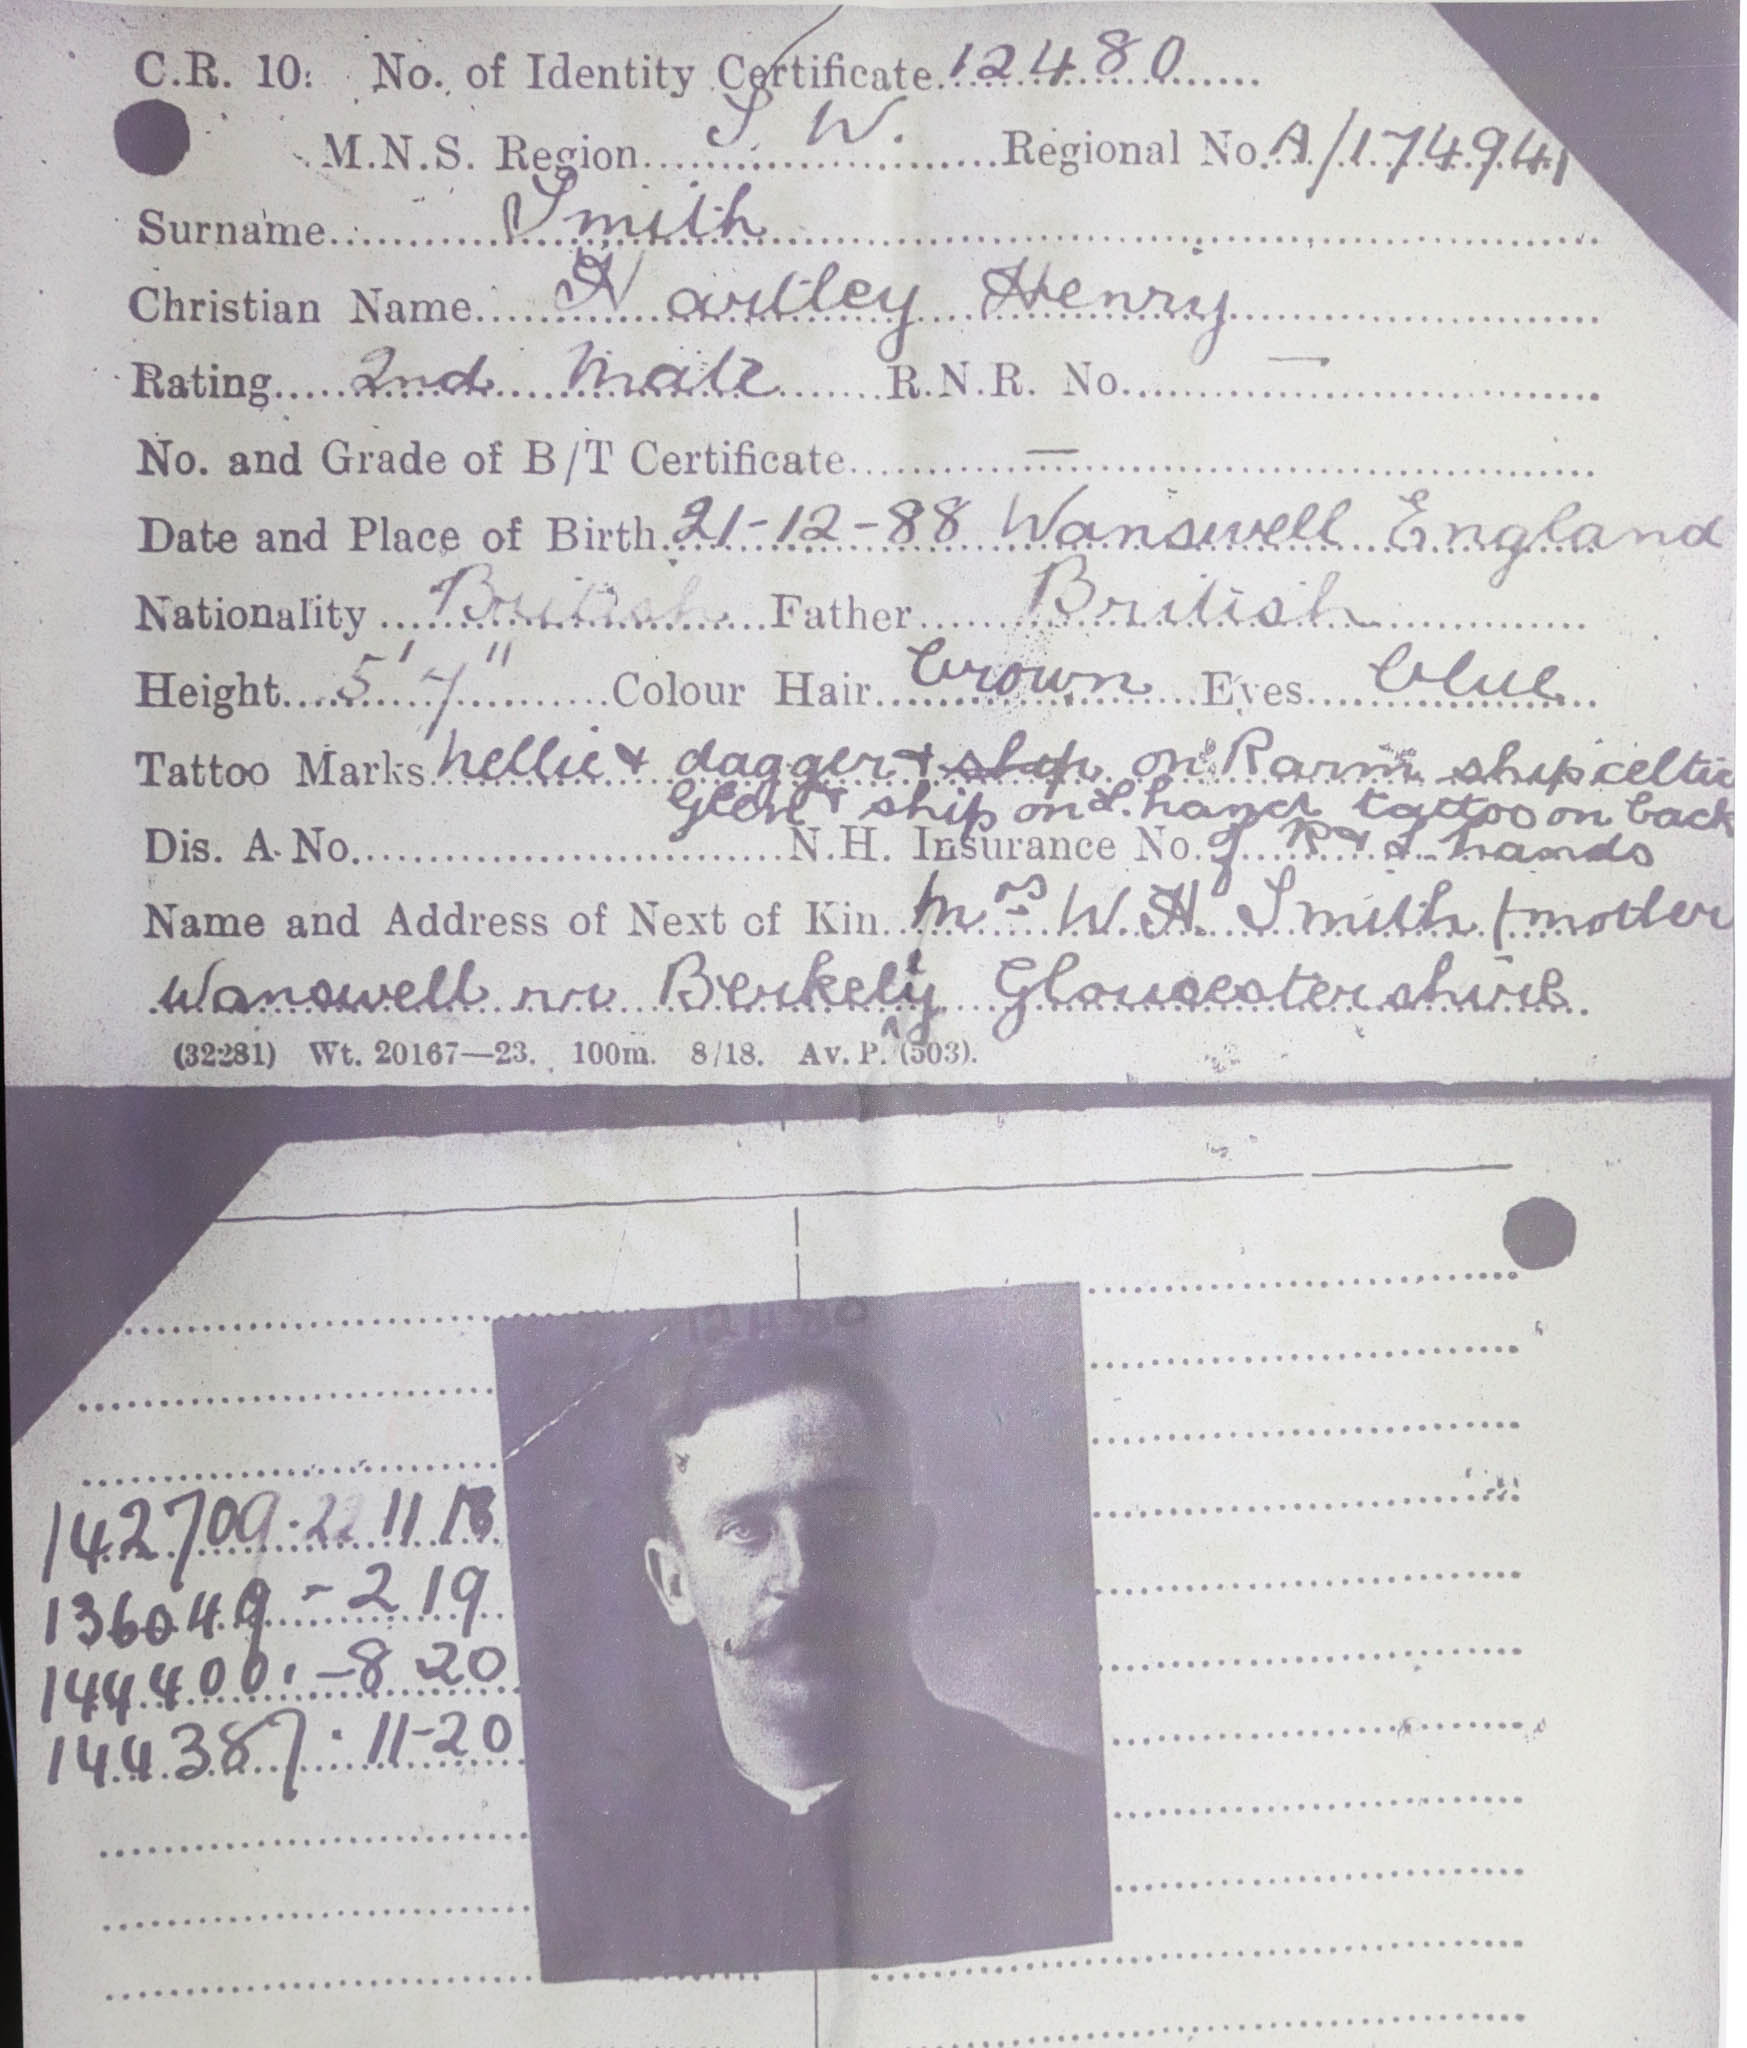 C.R. 10: No. of Identity Certificate. 12480
M.N.S. Region S. W. Regional No. A/174941
Surname Smith
Christian Name Hartley Henry
Rating 2nd Mate R.N.R. No. —
No. and Grade of B/T Certificate —
Date and Place of Birth 21-12-88 Wanswell England
Nationality British Father British
Height 5' 7" Colour Hair brown Eyes blue
Tattoo Marks nellie & dagger & ship on R arm ship celtic
Glen & ship on L. hand tattoo on back
Dis. A. No. N.H. Insurance No. of R & L hands
Name and Address of Next of Kin Mrs W. H. Smith (mother
Wanswell nr Berkely Gloucestershire
(32281) Wt. 20167—23. 100m. 8/18. Av. P. (503).
12480
142709 . 22 11 18
136049 - 2 19
144400 . - 8 20
144387 . 11-20